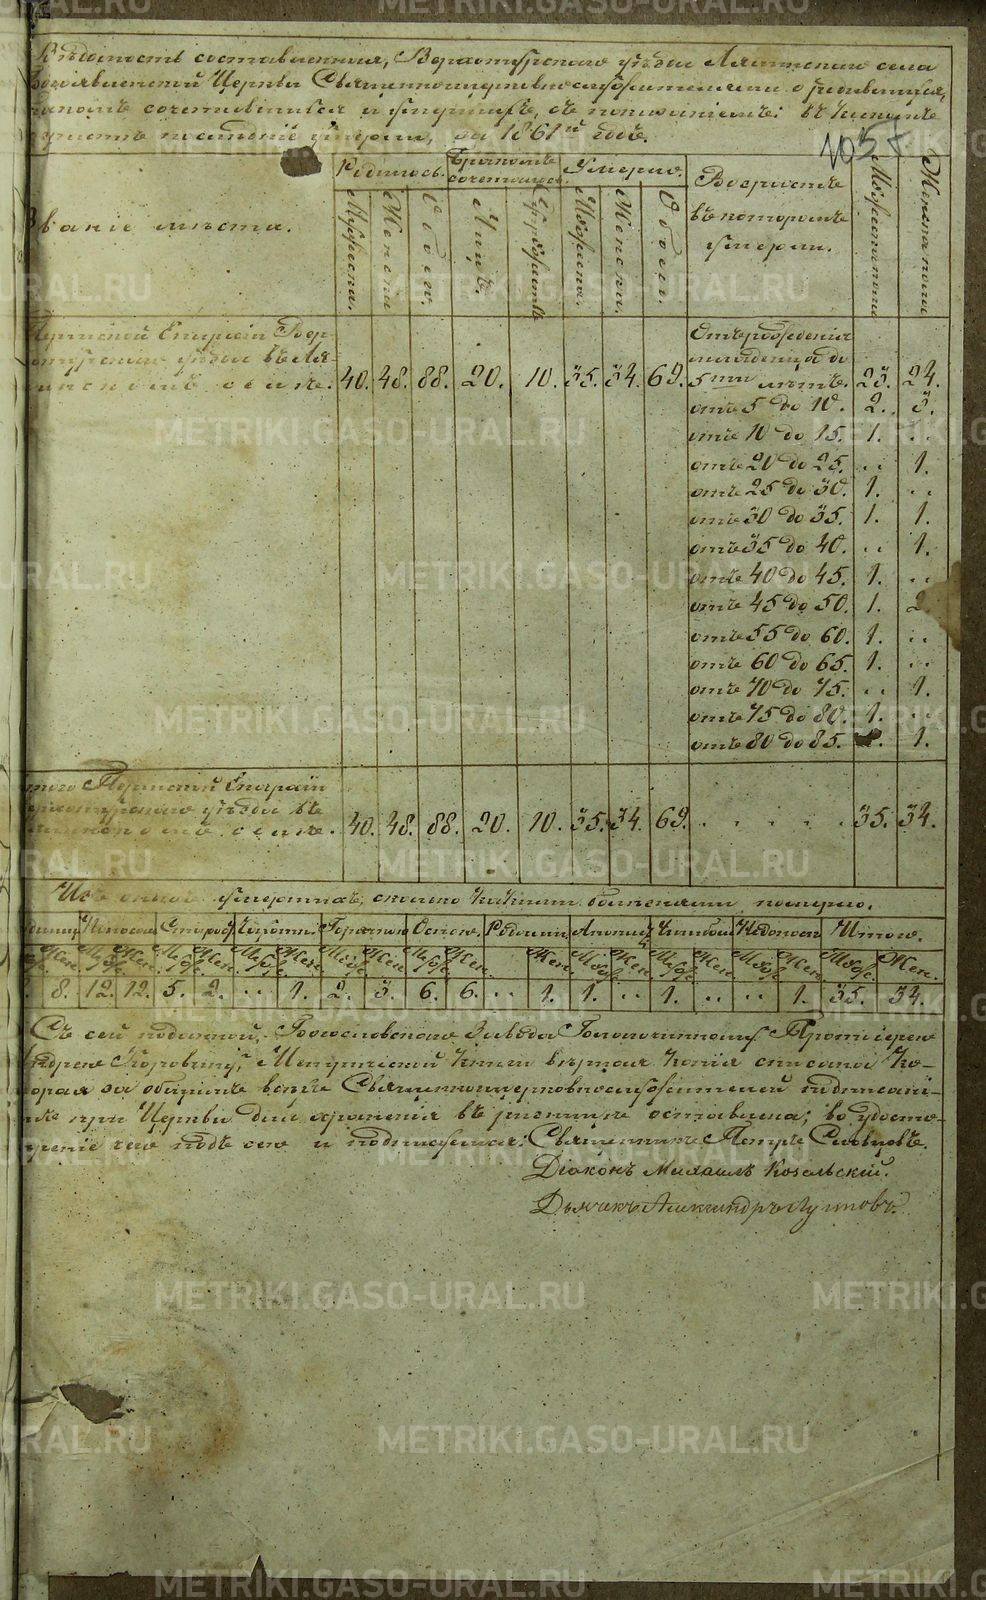 Вѣдомость составленная, Верхотурскаго уѣзда Лялинскаго села
Богоявленской Церкви Священноцерковнослужителями о родившихся,
бракомъ сочетавшихся и умершихъ, съ показаніемъ: въ какихъ
умершіе, за 1861й годъ.
1057
Званіе мѣста.
Родилось.
Бракомъ сочеталось.
Умерло.
Возрастъ въ которомъ умерли.
Мужеска пола
Женска пола
Мужеска.
Женска
Обоего.
Лицъ
Супружествъ
Мужеска.
Женска.
Обоего.
Пермской Епархіи Вер-
хотурскаго уѣзда въ Ля-
линскомъ селѣ. 40. 48. 88. 20. 10. 35. 34. 69.
Отъ рожденія
младенца до
5ти лѣтъ. 23. 24.
отъ 5 до 10. 2. 3.
отъ 10 до 15. 1. ..
отъ 20 до 25. .. 1.
отъ 25 до 30. 1. ..
отъ 30 до 35. 1. 1.
отъ 35 до 40. .. 1.
отъ 40 до 45. 1. ..
отъ 45 до 50. 1. 2.
отъ 55 до 60. 1. ..
отъ 60 до 65. 1. ..
отъ 70 до 75. .. 1.
отъ 75 до 80. 1. ..
отъ 80 до 85. 1.
Итого Пермской Епархіи
Верхотурскаго уѣзда въ
Лялинскомъ селѣ. 40. 48. 88. 20. 10. 35. 34. 69. . . . . . 35. 34.
Изъ онаго умершихъ, сколько какими болѣзнями померло.
Кашля Старос. Чахот. Горячкою Оспою. Родимц. Чахоткою Недоноск. Итого.
Жен. Муж. Жен. Муж. Жен. Муж. Жен. Муж. Жен. Жен. Муж. Жен. Муж. Жен. Муж. Жен. Муж. Жен.
8. 12. 12. 5. 2. .. 1. 2. 3. 6. 6. .. 1. 1. .. 1. .. .. 1. 35. 34.
Съ сей поданной, Богословскаго Завода Благочинному Протоіерею
Андрею Коровину, Метрической книги вѣрная копія списана ко-
торая за общимъ всѣхъ Священноцерковнослужителей подписані-
емъ при Церкви для храненія въ ризницѣ оставлена; во удосто-
вѣреніе чего подъ сею и подписуемся: Священникъ Петръ Словцовъ.
Діаконъ Михаилъ Козельскій.
Дьячекъ Александръ Лупповъ.
METRIKI.GASO-URAL.RU